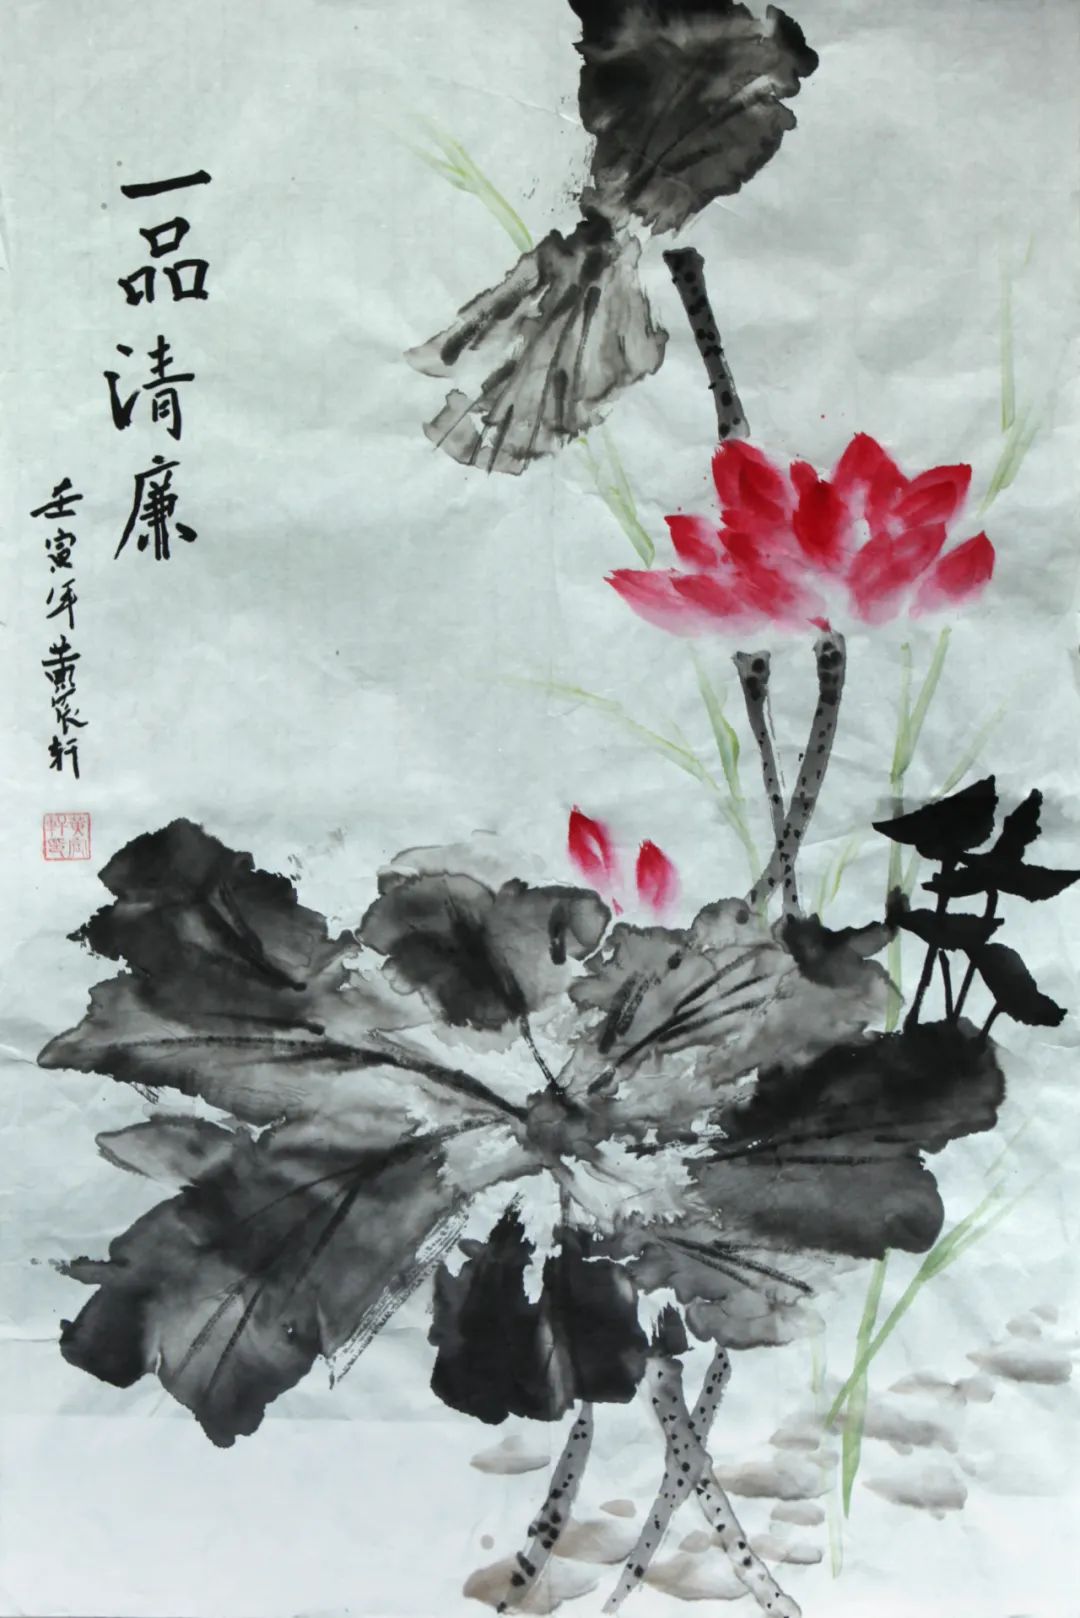 一品清廉
壬寅年黄宸轩